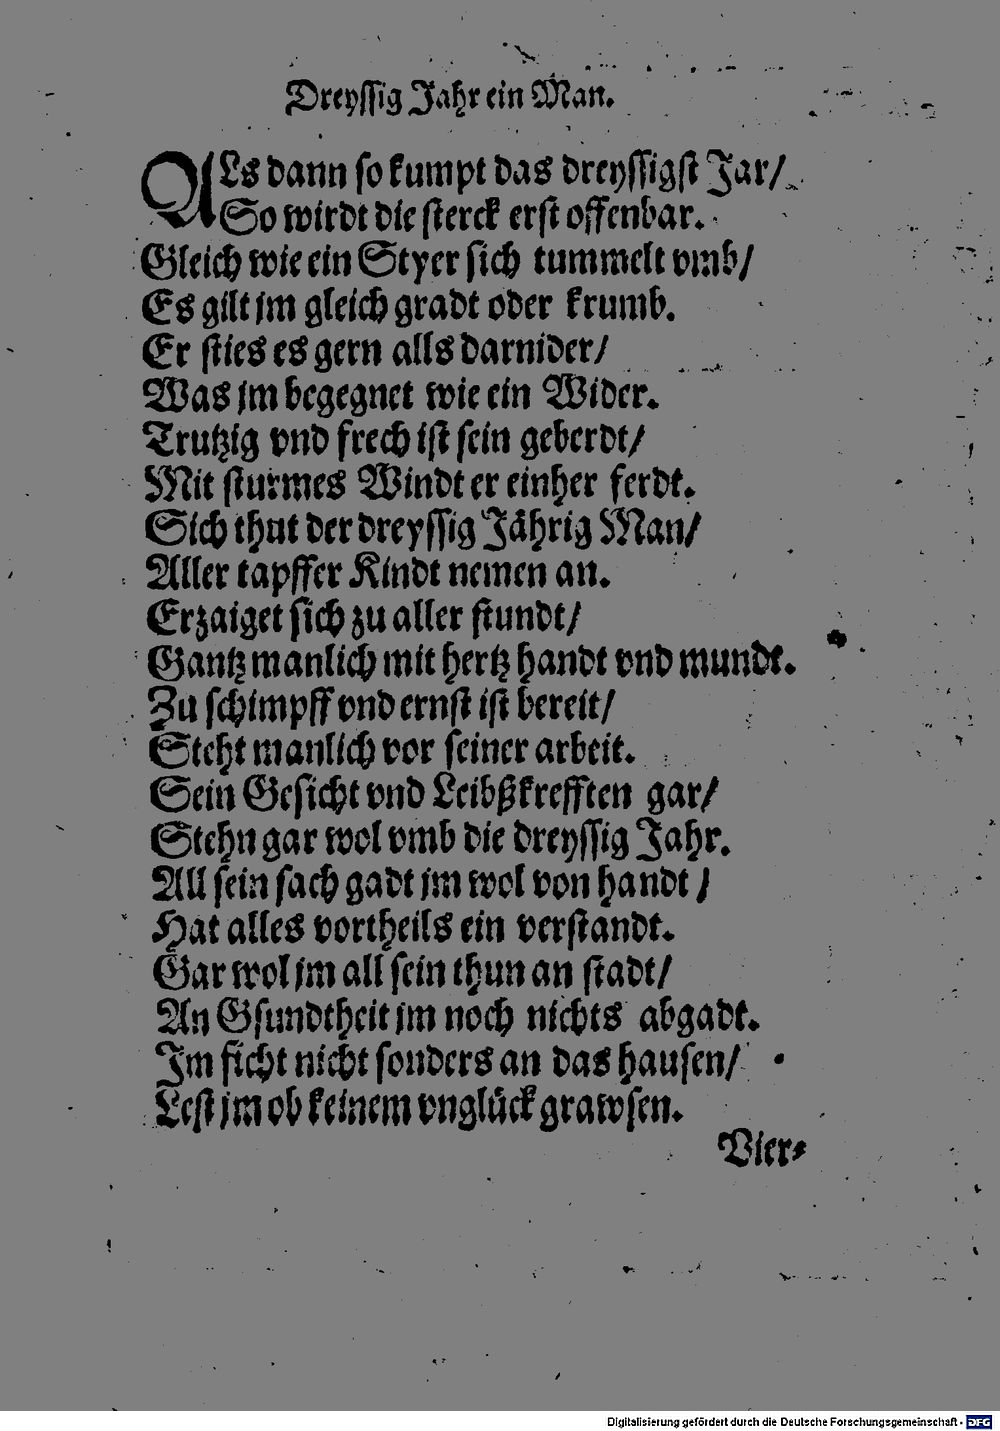 Dreyssig Jahr ein Man.
ALs dann so kumpt das dreyssigst Jar/
So wirdt die sterck erst offenbar.
Gleich wie ein Styer sich tummelt vmb/
Es gilt jm gleich gradt oder krumb.
Er sties es gern alls darnider/
Was jm begegnet wie ein Wider.
Trutzig vnd frech ist sein geberdt/
Mit sturmes Windt er einher ferdt.
Sich thut der dreyssig Jährig Man/
Aller tapffer Kindt nemen an.
Erzaiget sich zu aller stundt/
Gantz manlich mit hertz handt vnd mundt.
Zu schimpff vnd ernst ist bereit/
Steht manlich vor seiner arbeit.
Sein Gesicht vnd Leibßkrefften gar/
Stehn gar wol vmb die dreyssig Jahr.
All sein sach gadt jm wol von handt /
Hat alles vortheils ein verstandt.
Gar wol jm all sein thun an stadt/
An Gsundtheit jm noch nichts abgadt.
Im ficht nicht sonders an das hausen/
Lest jm ob keinem vnglück grawsen.
Vier-
Digitalisierung gefördert durch die Deutsche Forschungsgemeinschaft - DFG